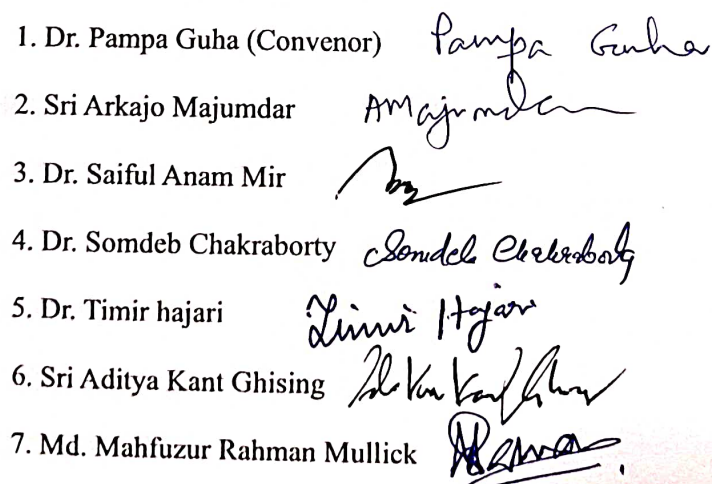 1. Dr. Pampa Guha (Convenor) Pampa Guha
2. Sri Arkajo Majumdar AMajumdar
3. Dr. Saiful Anam Mir
4. Dr. Somdeb Chakraborty Somdeb Chakraborty
5. Dr. Timir hajari Timir Hajari
6. Sri Aditya Kant Ghising
7. Md. Mahfuzur Rahman Mullick